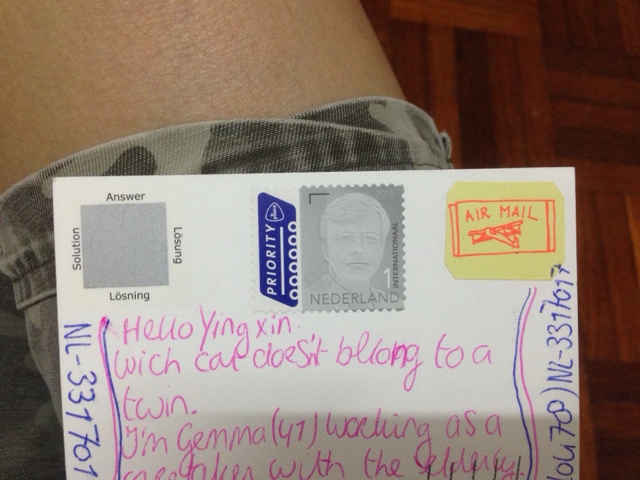 Answer
Solution
Lösung
Lösning
PRIORITY
1
INTERNATIONAAL
NEDERLAND
AIR MAIL
NL-331701
Hello Ying xin.
Wich cat doesn't belong to a
twin.
I'm Gemma (41) working as a
with the elderly
NL-3317017